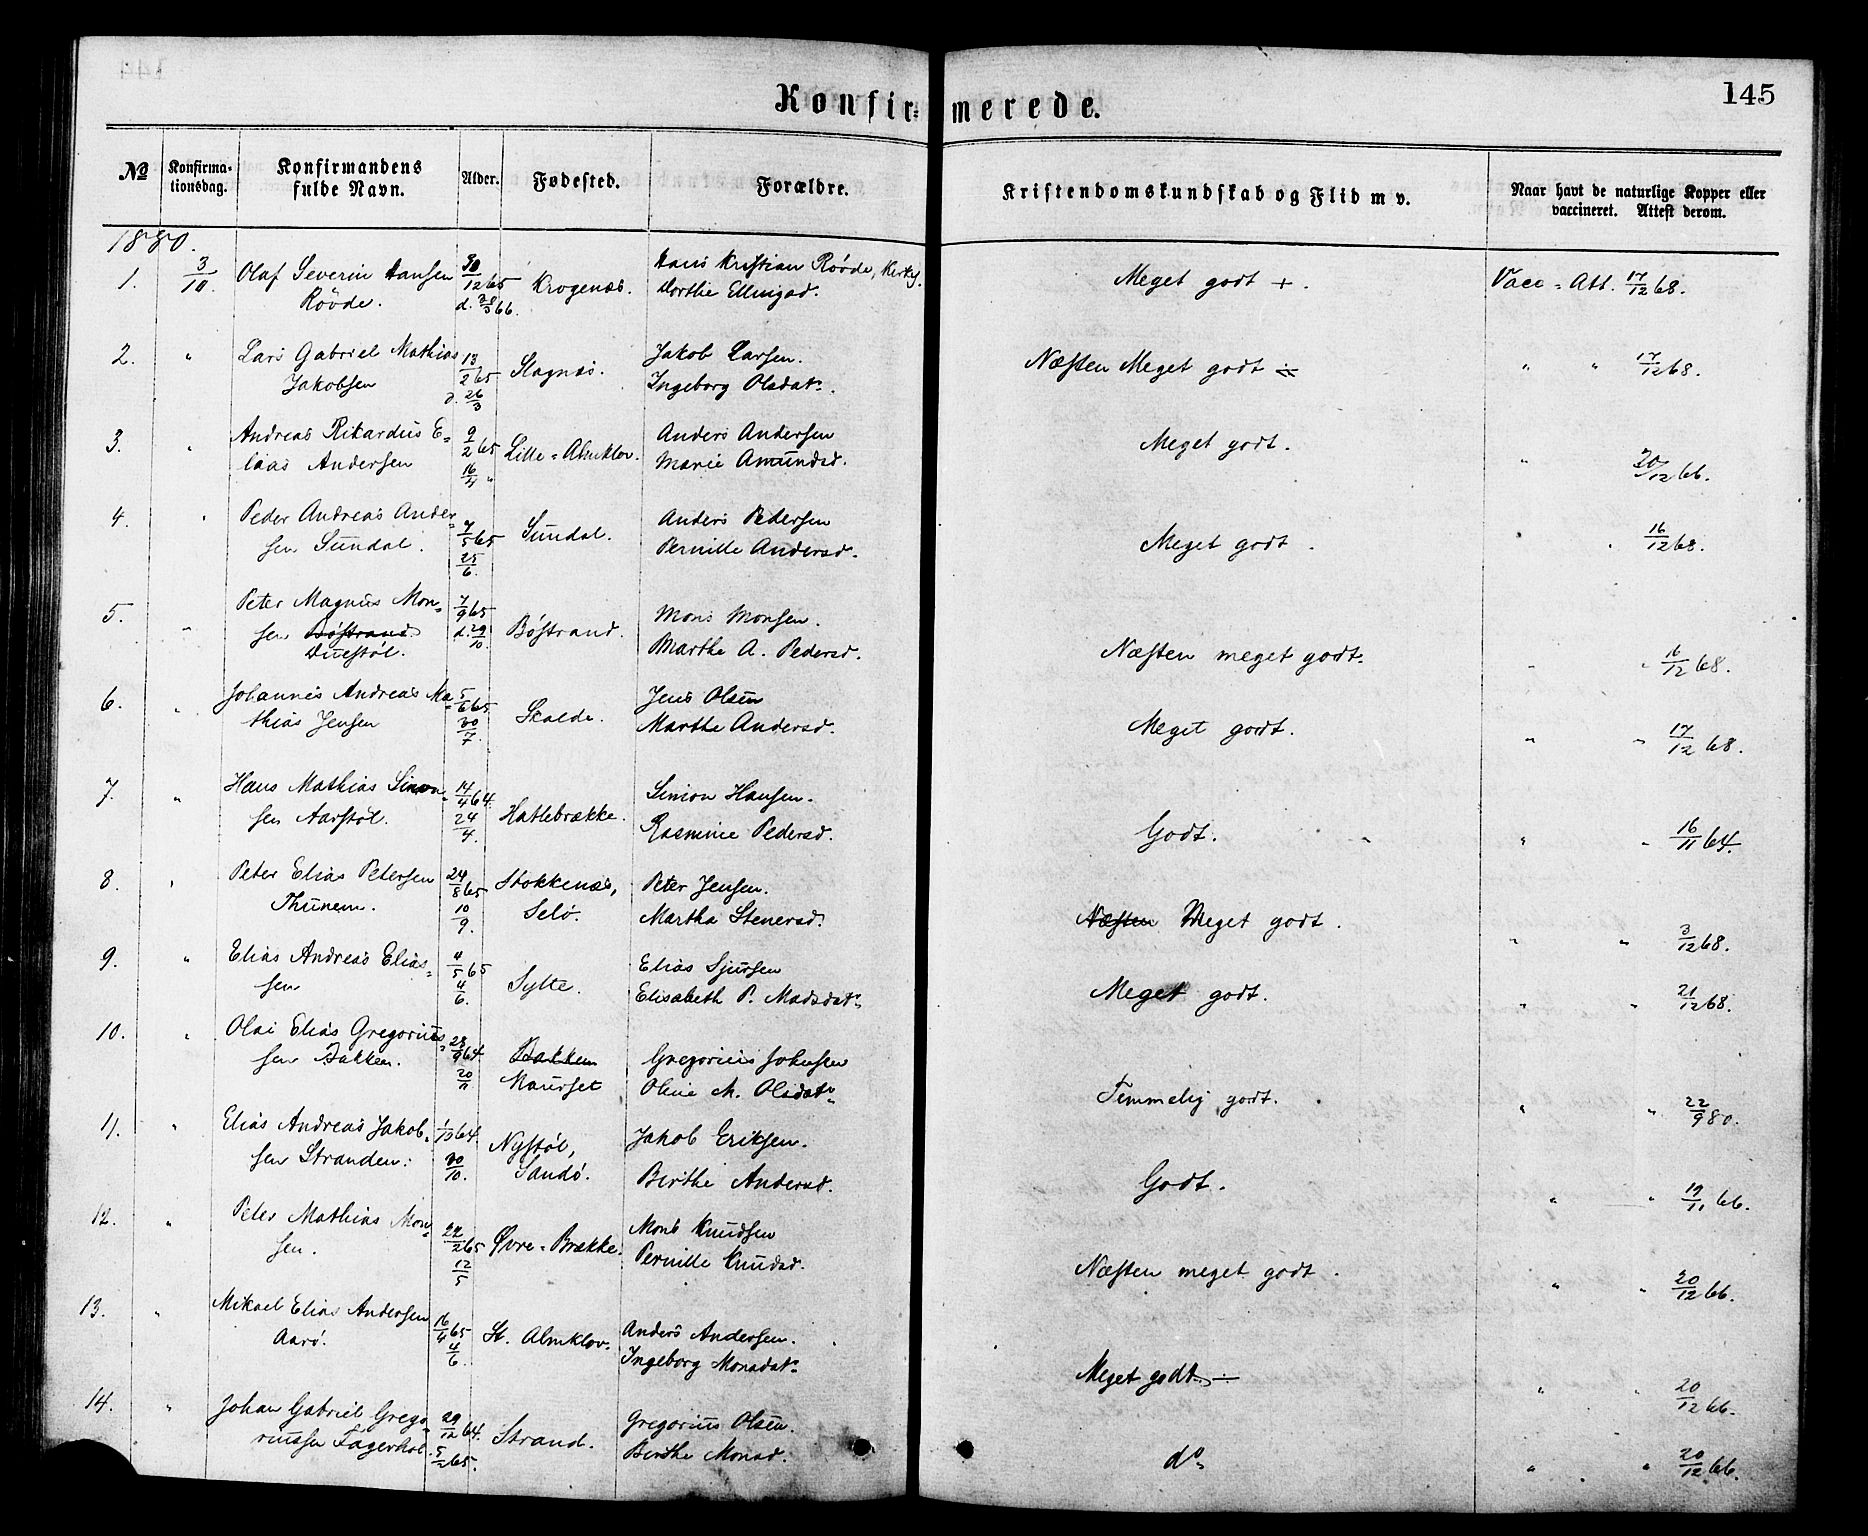 Konfirmerede.
145
No
Konfirma-
tionsdag.
Konfirmandens
fulde Navn.
Alder.
Fødested.
Forældre.
Kristendomskundskab og Flid m v.
Naar havt de naturlige Kopper eller
vaccineret. Attest derom.
1880.
1. 3/10 Olaf Severin Hansen 30/12 65 Krogenæs. Hans Kristian Røvde, Meget godt +. Vacc. Att. 17/12 68.
Røvde. d. 5 66. Dorthe
2. " Lars Gabriel Mathias 13/2 65 Slagnæs. Jakob Larsen. Næsten Meget godt " " 17/12 68.
Jakobsen d. 26/3 Ingeborg Olsdatr.
3. " Andreas Rikardus E- 9/2 65 Lille-Almklov. Anders Andersen Meget godt. " 20/12 66.
lias Andersen 16/4 " Marie Amundsd.
4. " Peder Andreas Ander- 7/5 65 Sundal. Anders Pedersen Meget godt. " " 16/12 68.
sen Sundal. 25/6. Pernille Andersd.
5. " Peter Magnus Mon- 7/9 65 Bøstrand. Mons Monsen. Næsten meget godt. " " 16/12 68.
sen Bøstrand d. 29/10. Marthe A. Pedersd.
Duestøl.
6. " Johannes Andreas Ma- 5/6 65 Skalde. Jens Olsen Meget godt. " " 17/12 68.
thias Jensen 30/7. Marthe Andersd.
7. " Hans Mathias Simon- 14/4 64. Hatlebrække. Simon Hansen. Godt. " " 16/11 64.
sen Aarstøl. 24/4. Rasmine Pedersd.
8. " Peter Elias Petersen 24/8 65 Stokkenæs, Peter Jensen. Næsten Meget godt. " " 3/12 68.
Thunem. 10/9. Selø. Martha Stenersd.
9. " Elias Andreas Elias- 4/5 65 Sylte. Elias Sjursen Meget godt. " " 21/12 68.
sen 4/6. Elisabeth P. Madsdatr.
10. " Olai Elias Gregorius- 28/9 64. Bakken Gregorius Johnsen Temmelig godt. " " 22/9 80.
sen Bakken. 20/11 Maurset Oline M. Olsdatr.
11. " Elias Andreas Jakob- 1/10 64. Nystøl, Jakob Eriksen. Godt. " " 19/11 66.
sen Stranden. 30/10. Sandø. Birthe Andersd.
12. " Peter Mathias Mon- 22/2 65 Øvre-Brække. Mons Knudsen Næsten meget godt. " " 20/12 66.
sen. 12/5 Pernille Knudsd.
13. " Mikael Elias Andersen 16/4 65 St. Almklov. Anders Andersen. Meget godt. ÷ " " 20/12 66.
Aarø. 4/6. Ingeborg Monsdatr.
14. " Johan Gabriel Grego- 29/12 64. Strand. Gregorius Olsen. do " " 20/12 66.
riussen Fagerhol. 5/2 65. Birthe Monsd.